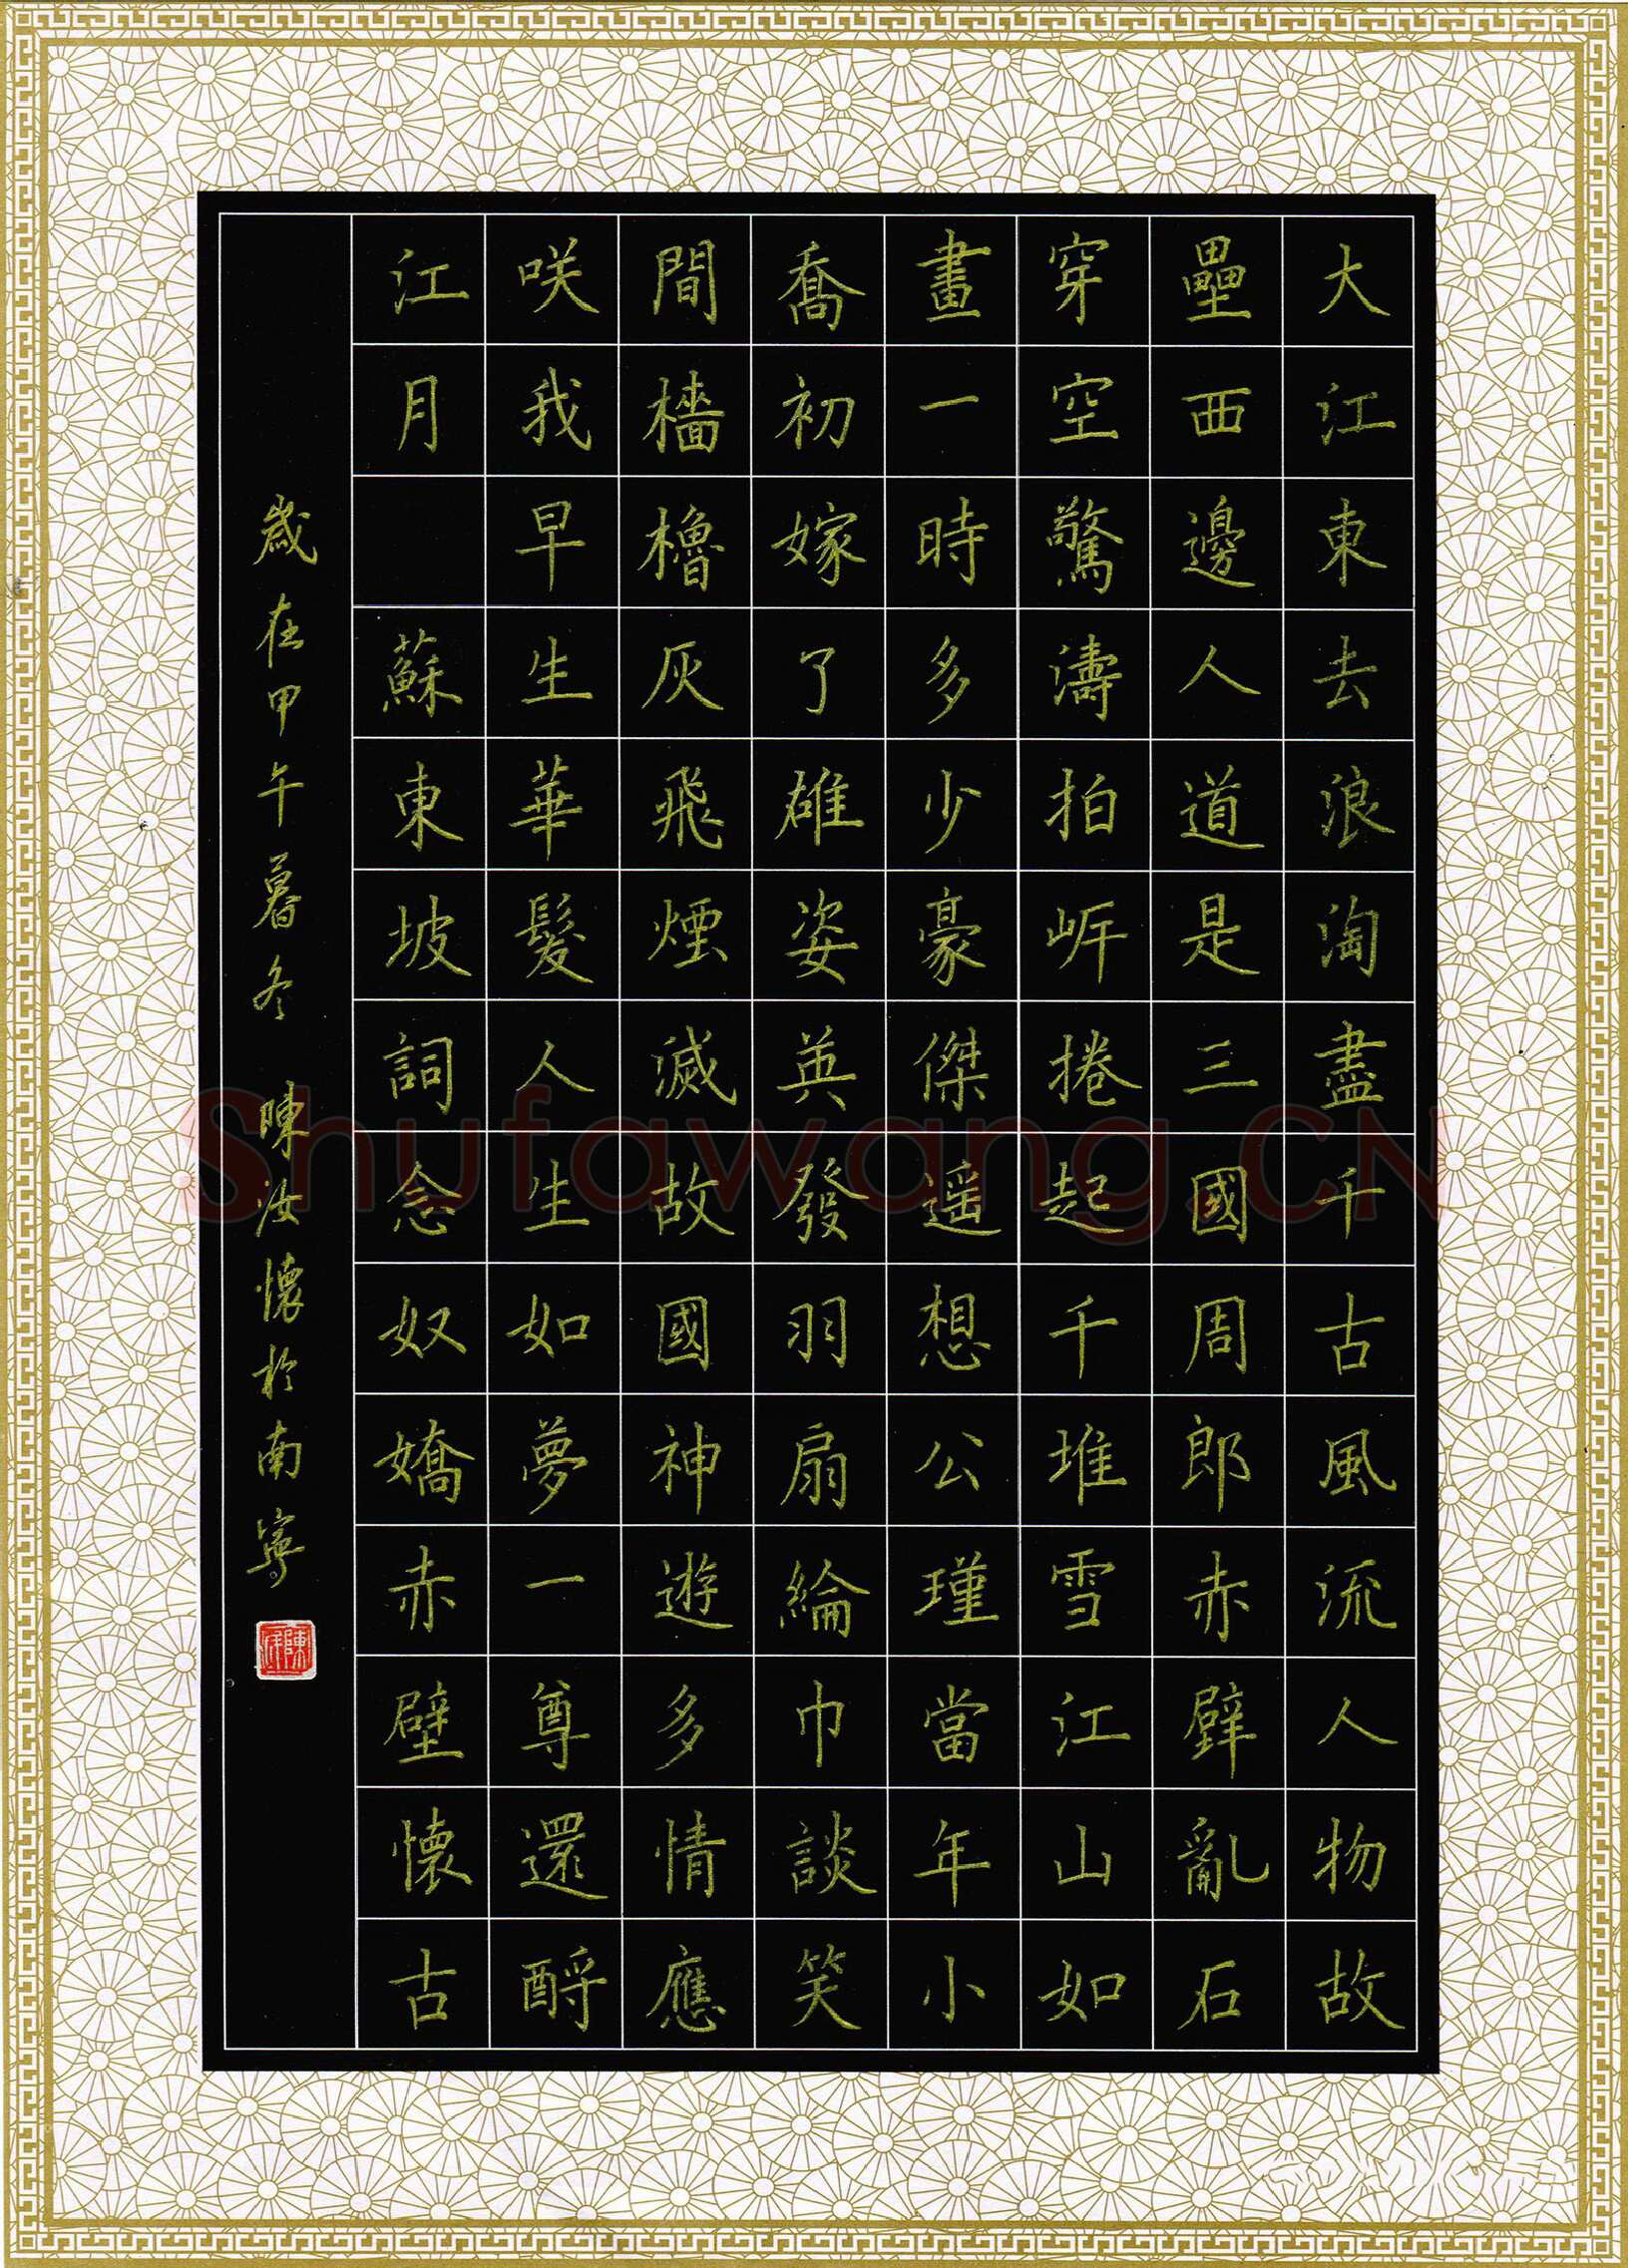 大江東去浪淘盡千古風流人物故
壘西邊人道是三國周郎赤壁亂石
穿空驚濤拍岍捲起千堆雪江山如
畫一時多少豪傑遥想公瑾當年小
喬初嫁了雄姿英發羽扇綸巾談笑
間檣櫓灰飛煙滅故國神遊多情應
咲我早生華髮人生如夢一尊還酹
江月 蘇東坡詞念奴嬌赤壁懷古
歲在甲午暮冬 陳汝懷於南寧
Shufawang.CN